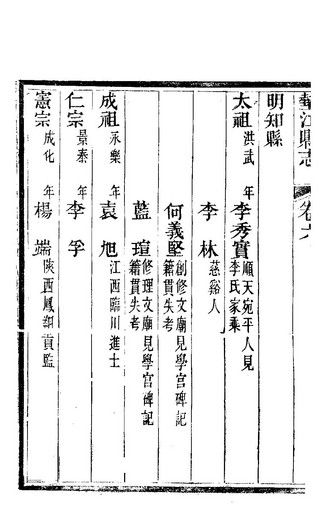 綦江縣志 卷六
明知縣
太祖 洪武 年 李秀實 順天宛平人見李氏家乘
李林 慈谿人
何義堅 創修文廟見學宫碑記籍貫失考
藍瑄 修理文廟見學宫碑記籍貫失考
成祖 永樂 年 袁旭 江西臨川進士
仁宗 景泰 年 李孚
憲宗 成化 年 楊端 陝西鳳翔貢監